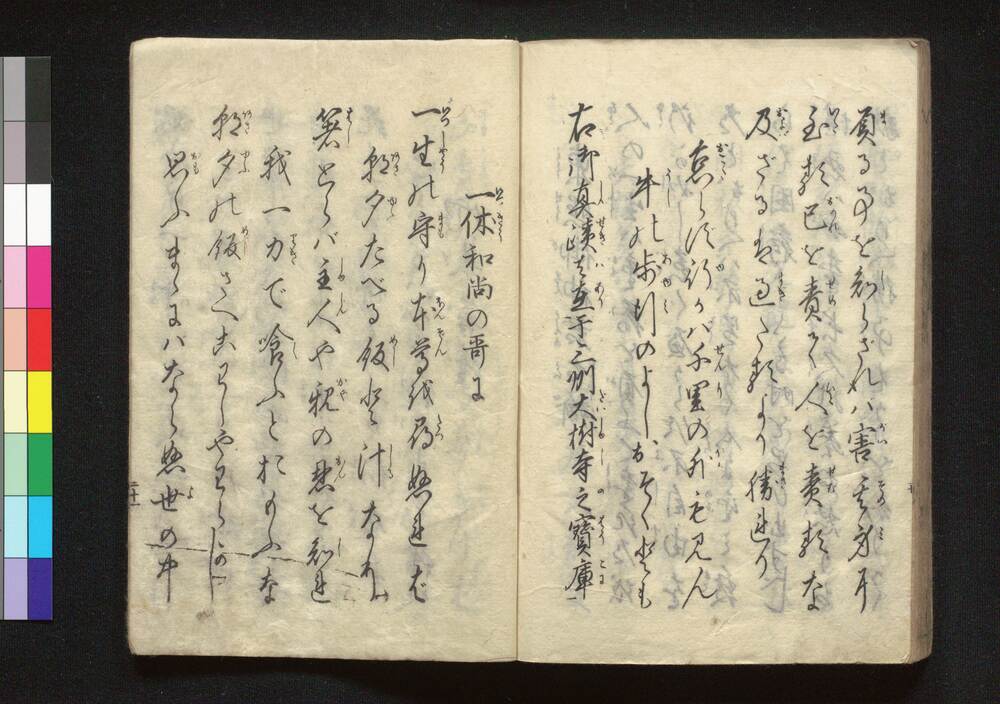 負る事を知らざれハ害其身に
至る己を責て人を責るな
及ざるは過たるより勝れり
怠らず行かバ千里の外も見ん
牛の歩行のよしおそくとも
右御真蹟ハ在于三州大樹寺之寶庫
一休和尚の哥に
一生の守り本尊を尋ぬれば
朝夕たべる飯と汁なり
箸とらバ主人や親の恩を知れ
我一力で喰ふとおもふな
朝夕の飯さへこわしやわらかし
思ふまゝにハならぬ世の中